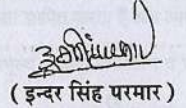 ( इन्दर सिंह परमार )